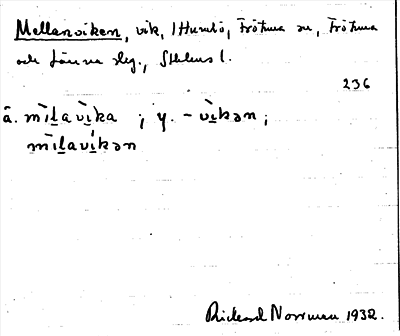 Mellanviken, vik, i Humlö, Frötuna sn, Frötuna
och Länna slg., Sthlms l.
236
ä. mìlavìka ; y. - vìkən ;
mìlavìkən
Rickard Norrman 1932.